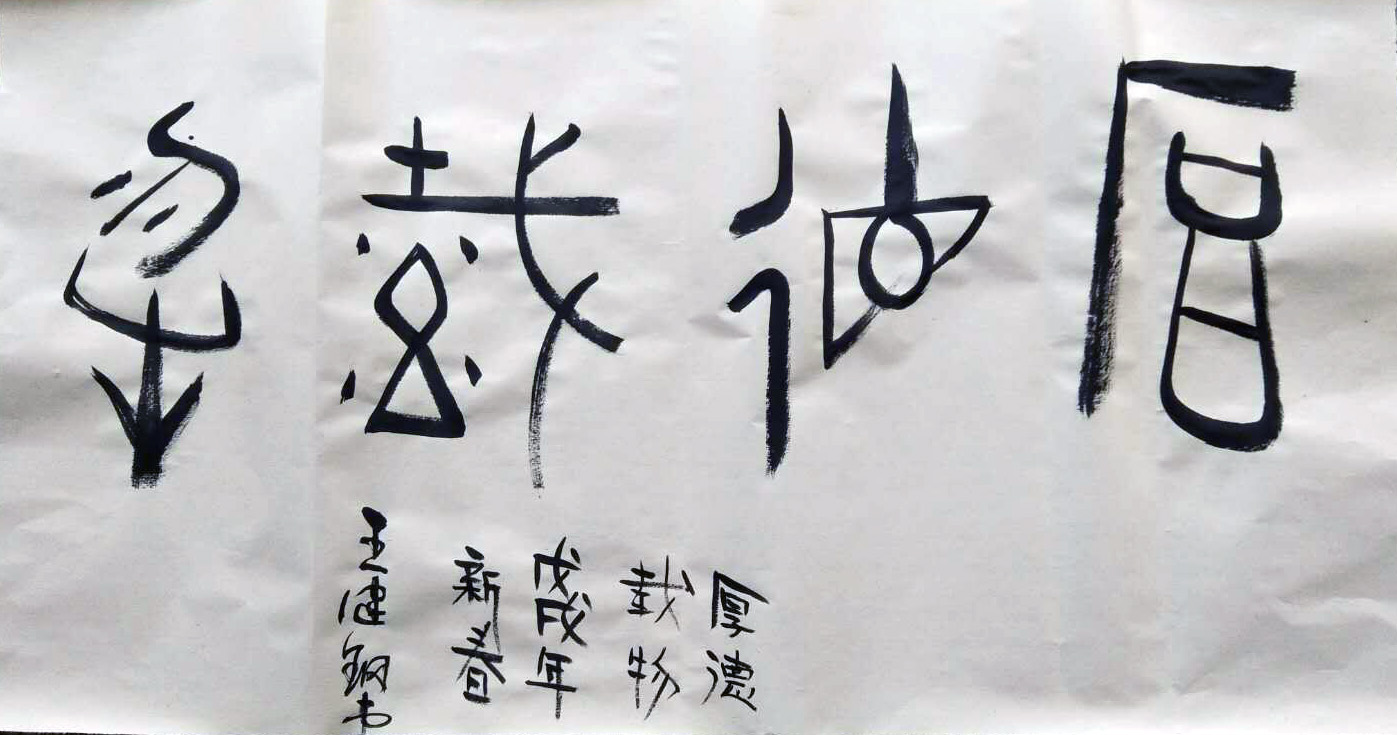 厚德载物
厚德
载物
戊戌年
新春
王健钢书